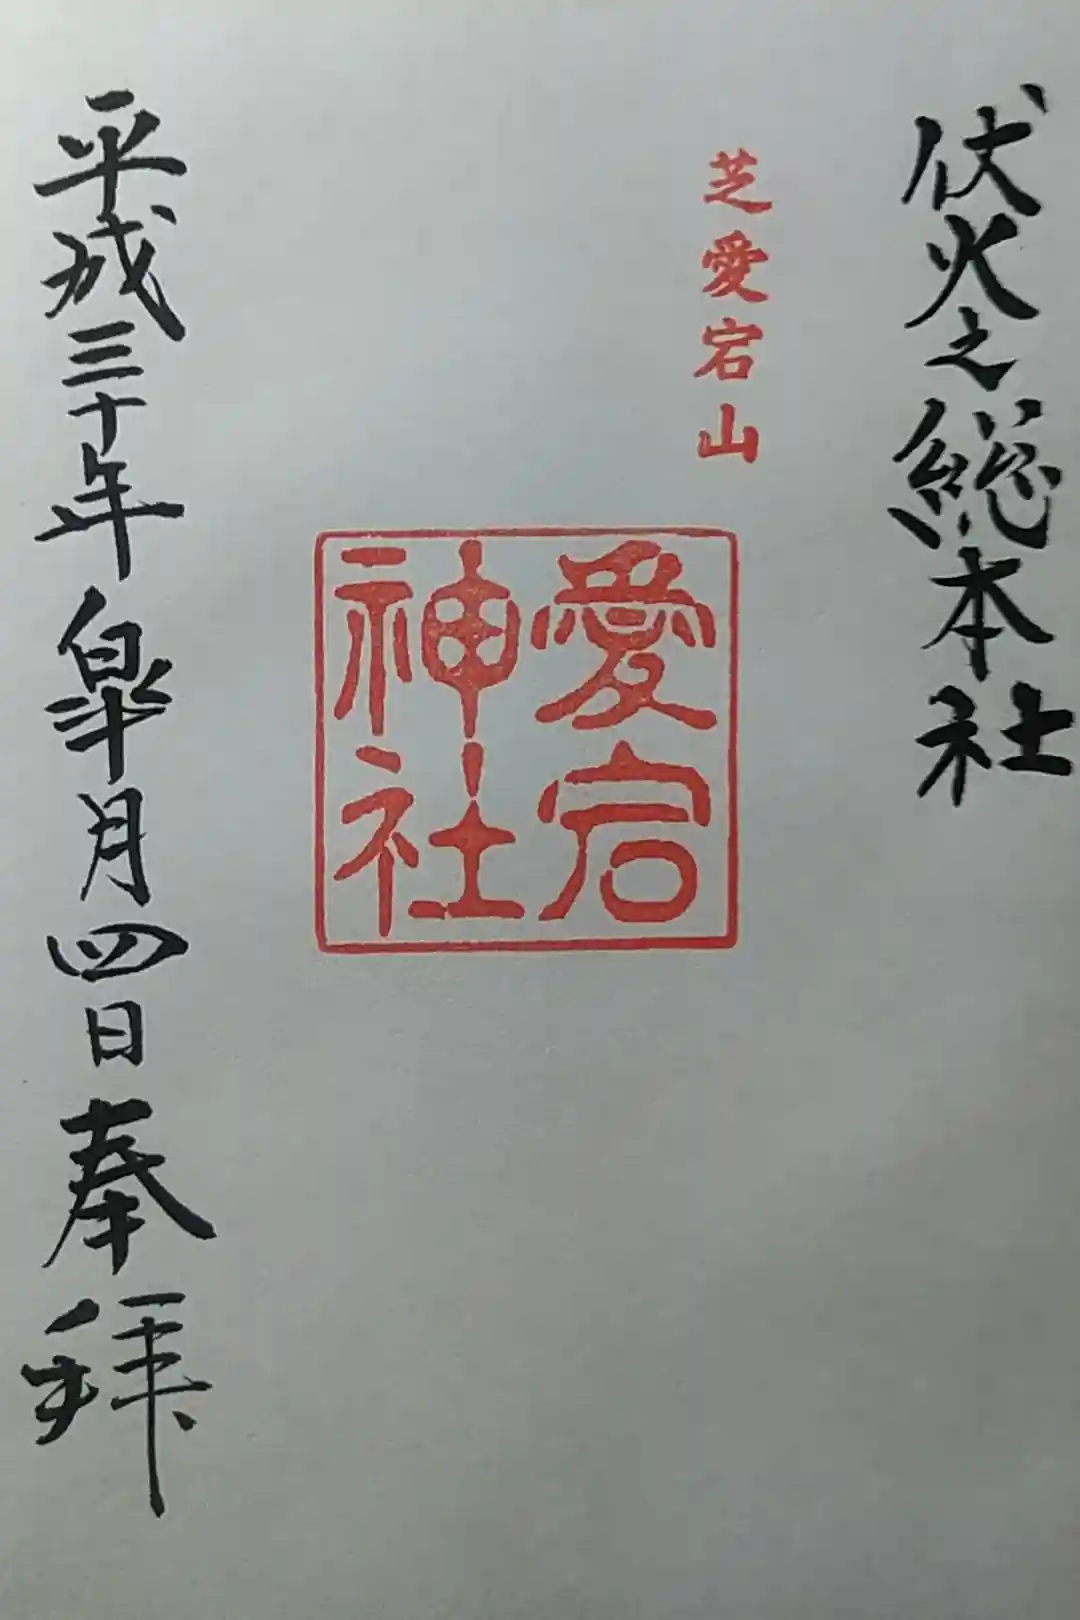 伏火之総本社
芝愛宕山
愛宕
神社
平成三十年皐月四日奉拝